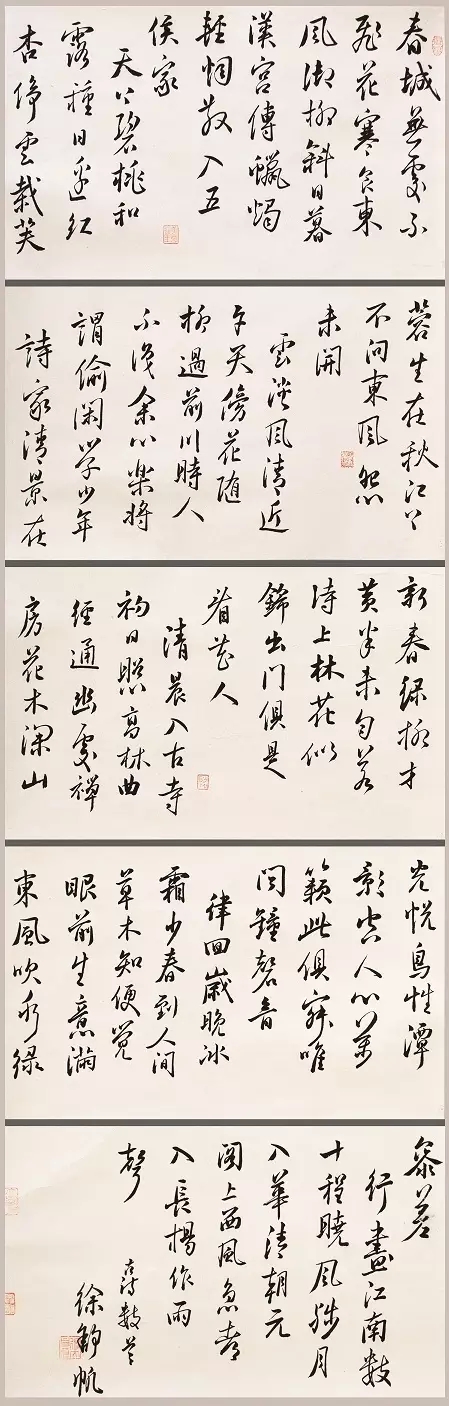 春城無處不
飛花寒食東
風御柳斜日暮
漢宮傳蠟燭
輕烟散入五
侯家
天上碧桃和
露種日邊紅
杏倚雲栽芙
蓉生在秋江上
不向東風怨
未開
雲淡風清近
午天傍花隨
柳過前川時人
不識余心樂將
謂偷閑學少年
詩家清景在
新春綠柳才
黃半未勻若
待上林花似
錦出門俱是
看花人
清晨入古寺
初日照高林曲
徑通幽處禪
房花木深山
光悅鳥性潭
影空人心萬
籟此俱寂唯
聞鐘磬音
律回歲晚冰
霜少春到人間
草木知便覺
眼前生意滿
東風吹水綠
參差
行盡江南數
十程曉風殘月
入華清朝元
閣上西風急都
入長楊作雨
聲
詩數首
徐靜帆